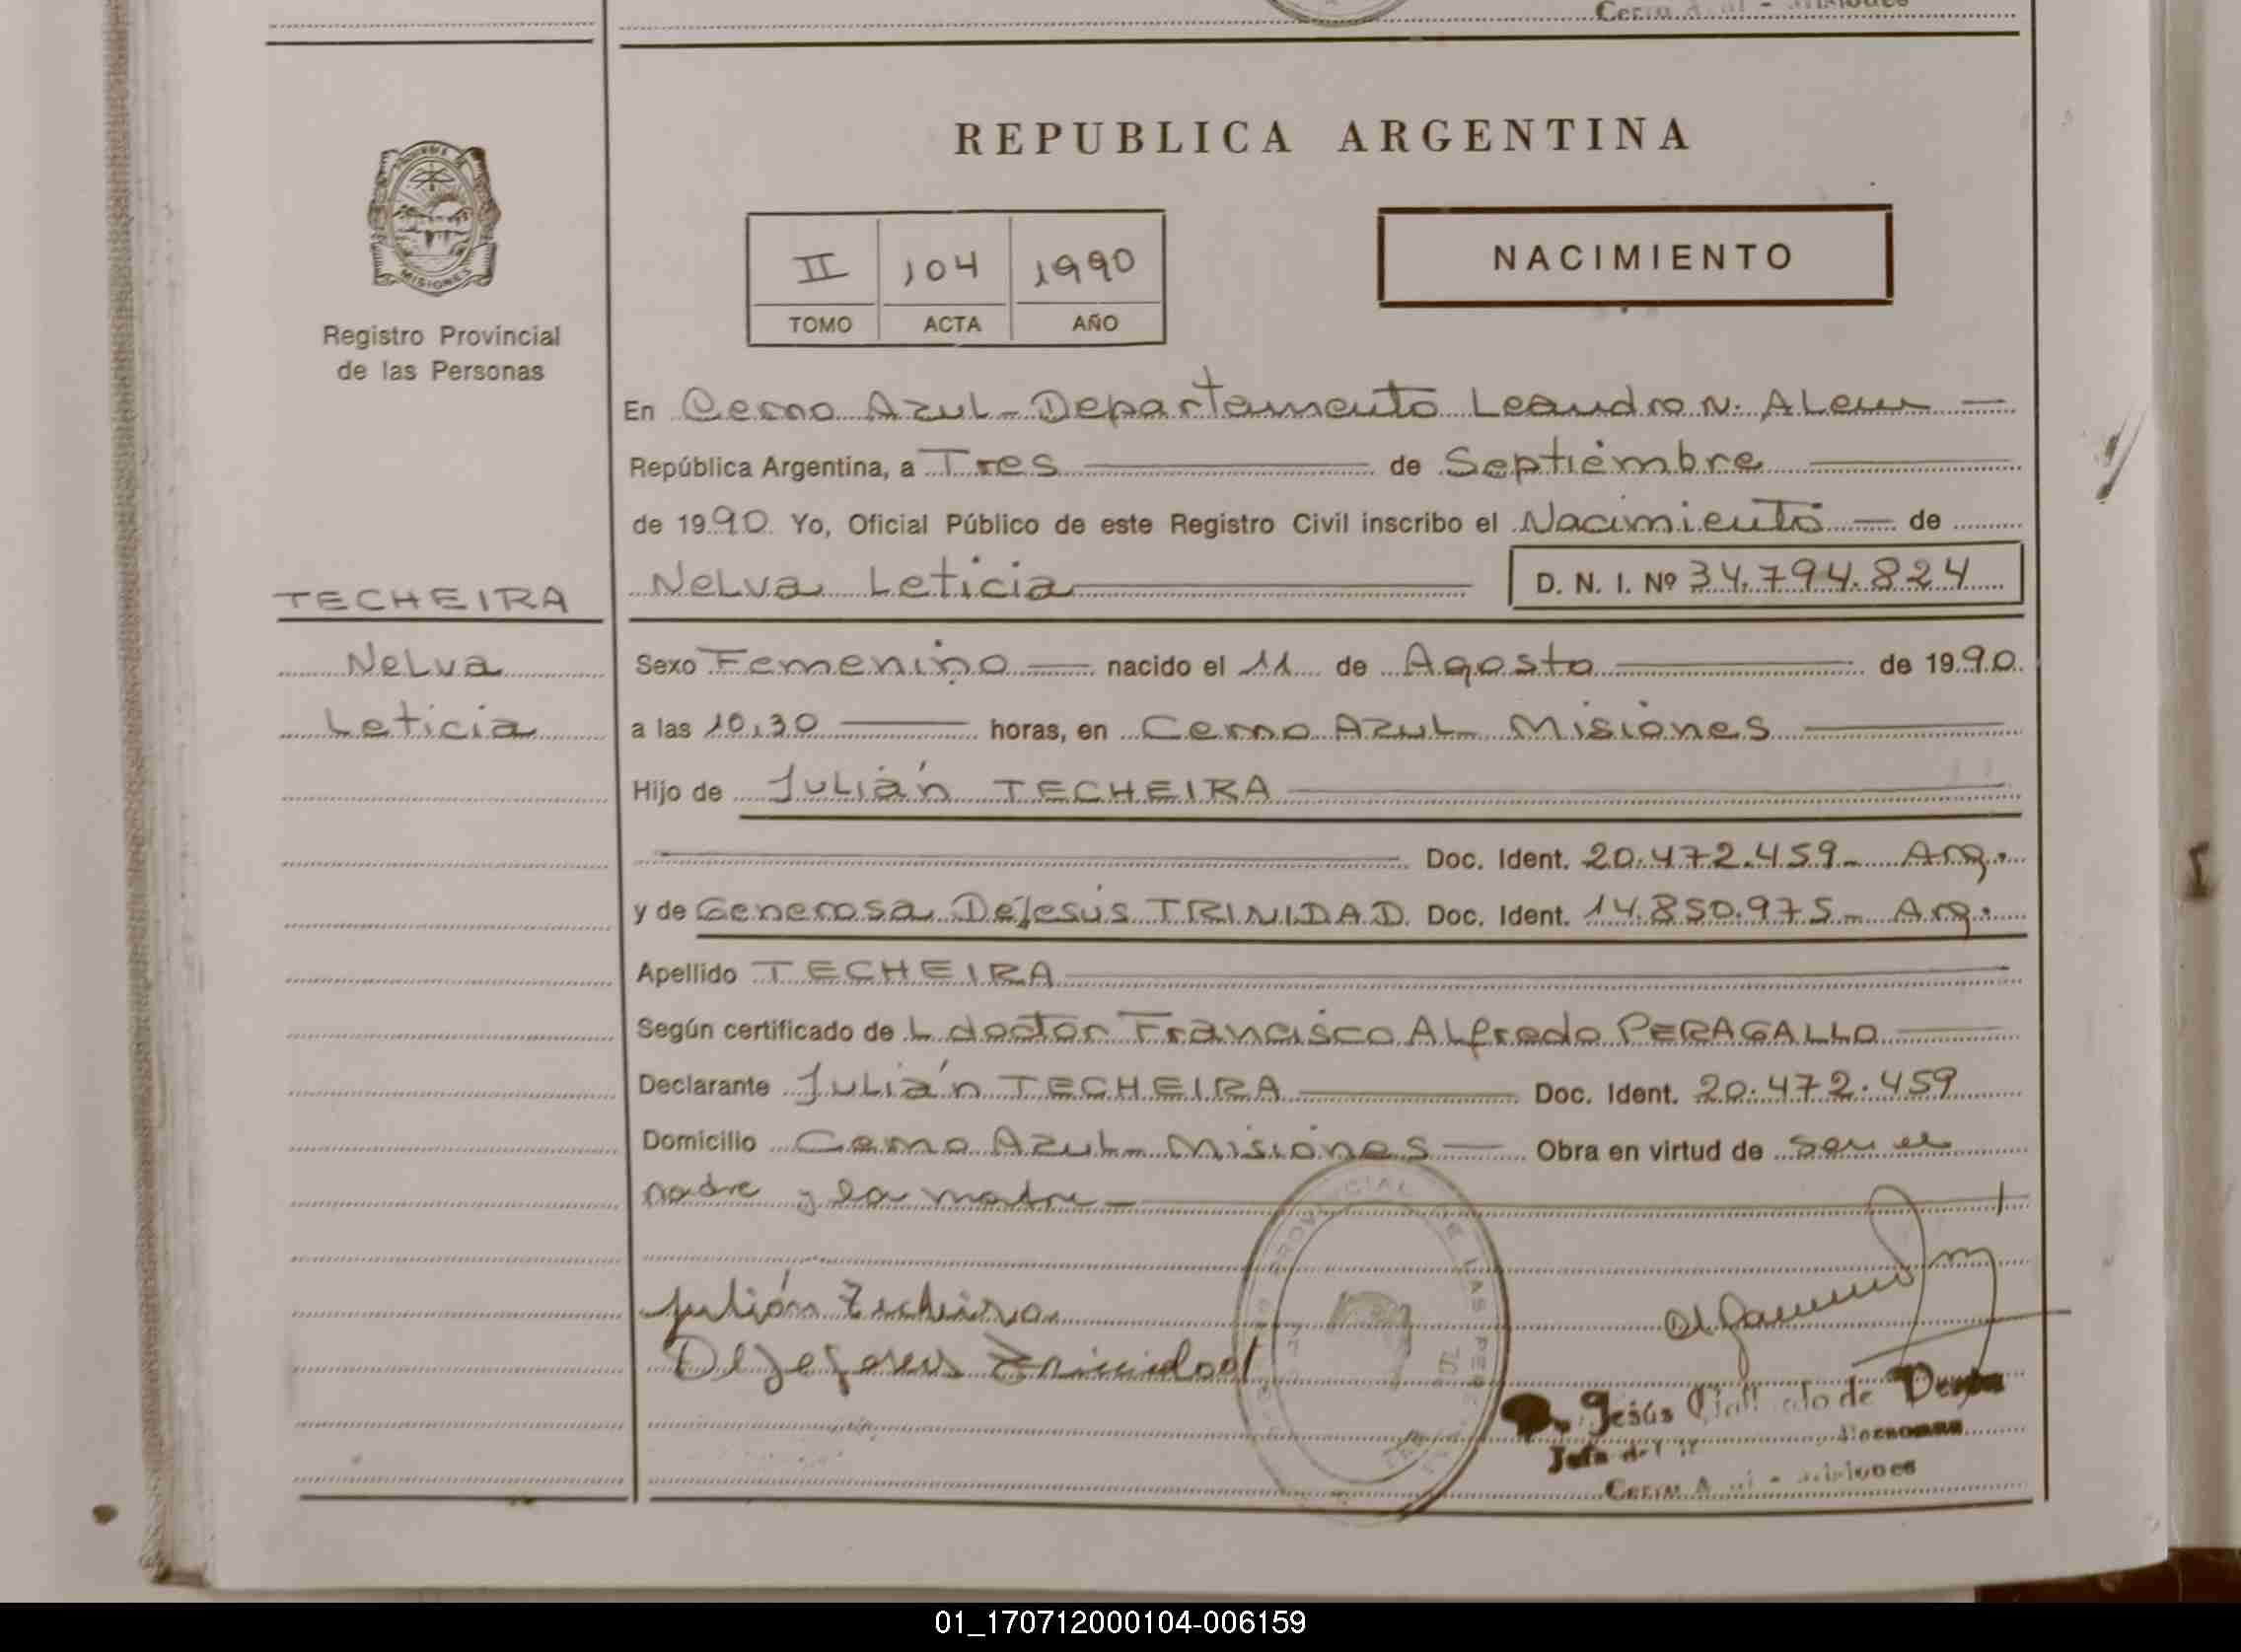 REPUBLICA ARGENTINA
MISIONES
Registro Provincial
de las Personas
II 104 1990
TOMO ACTA AÑO
NACIMIENTO
En Cerro Azul - Departamento Leandro N. Alem —
República Argentina, a Tres de Septiembre
de 1990. Yo, Oficial Público de este Registro Civil inscribo el Nacimiento — de
Nelva Leticia D. N. I. Nº 34.794.824
TECHEIRA
Nelva
Leticia
Sexo Femenino nacido el 11 de Agosto de 1990.
a las 10,30 horas, en Cerro Azul - Misiones
Hijo de Julián TECHEIRA
Doc. Ident. 20.472.459 - Arg.
y de Generosa DeJesús TRINIDAD Doc. Ident. 14.850.975 - Arg.
Apellido TECHEIRA
Según certificado de L doctor Francisco Alfredo PERAGALLO
Declarante Julián TECHEIRA Doc. Ident. 20.472.459
Domicilio Cerro Azul - Misiones — Obra en virtud de ser el
padre y la madre —
Julián Techeira
Dejesus Trinidad
PROVINCIAL DE LAS PER
Jesús de
Cerro A - Misiones
01_170712000104-006159